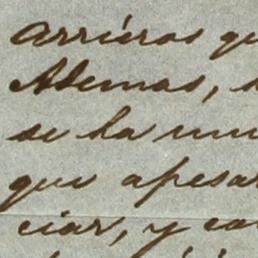 arrieros qu
Ademas, s
se ha mu
que apesar
ciar, y co